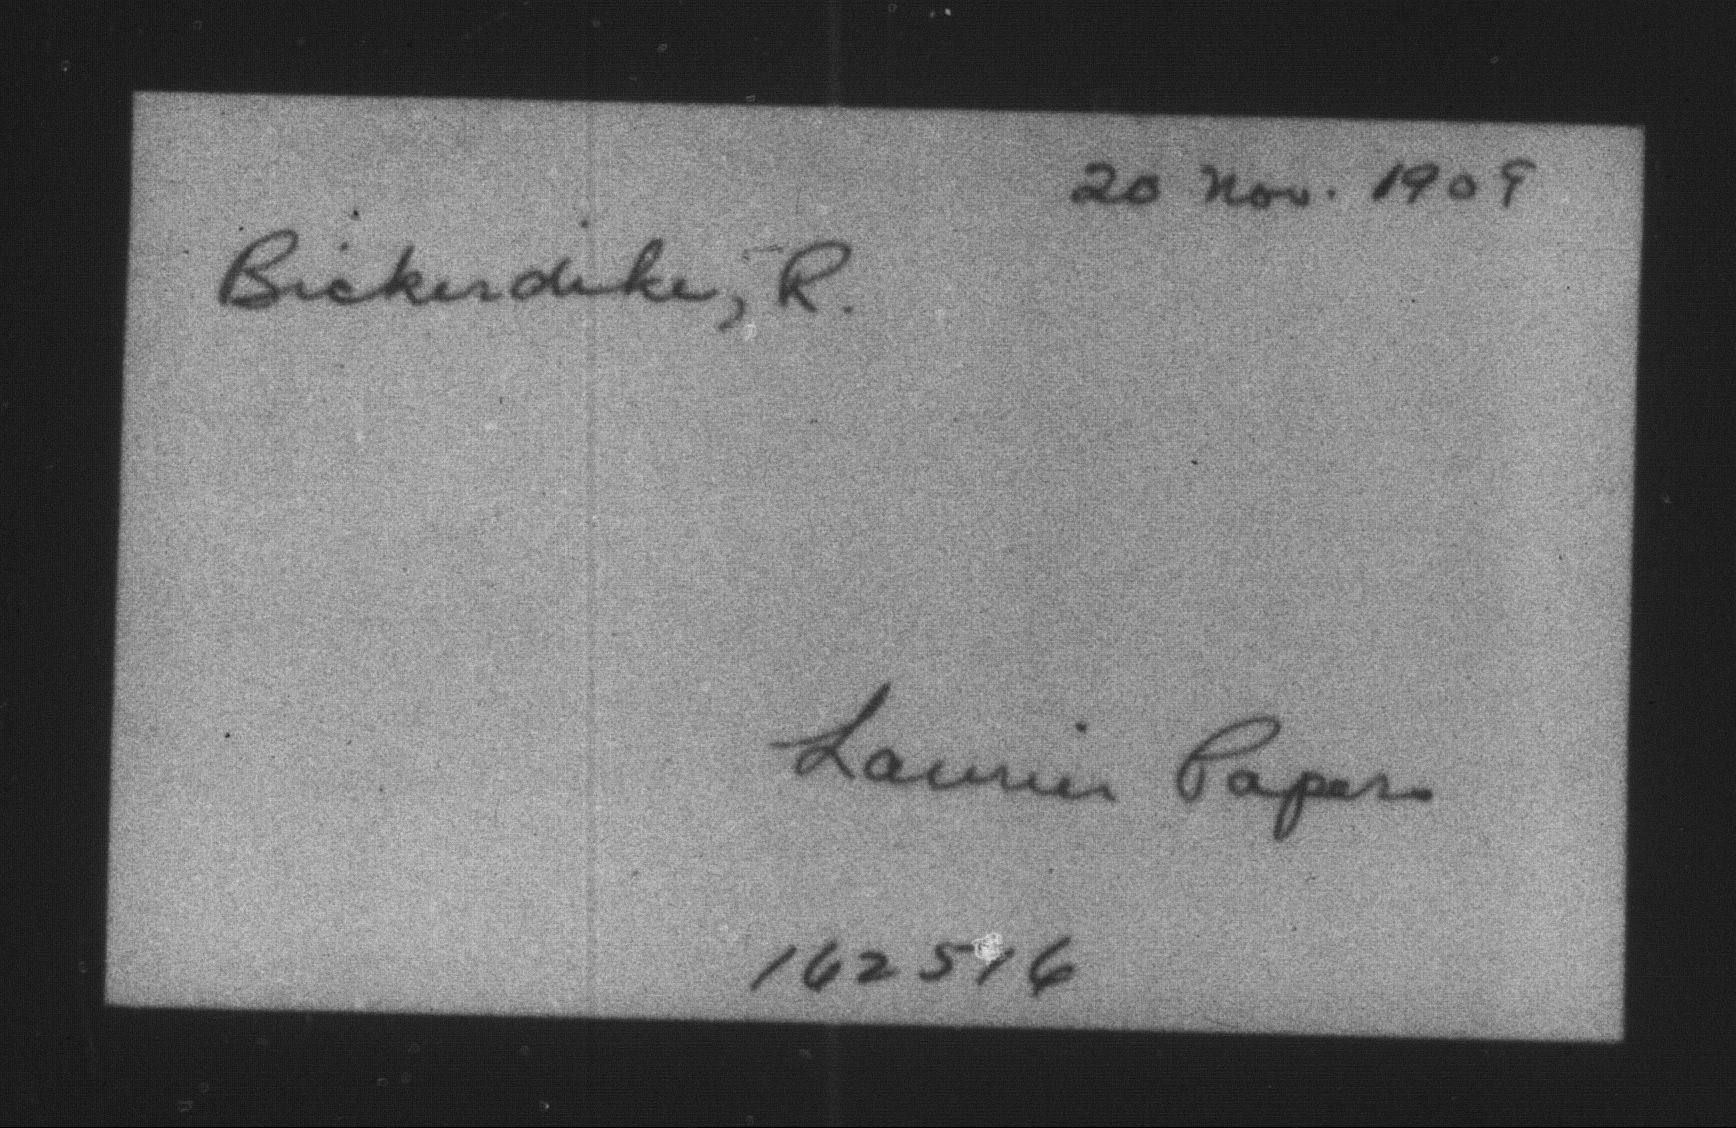 20 Nov. 1909
Bickerdike, R.
Laurier Papers
162516